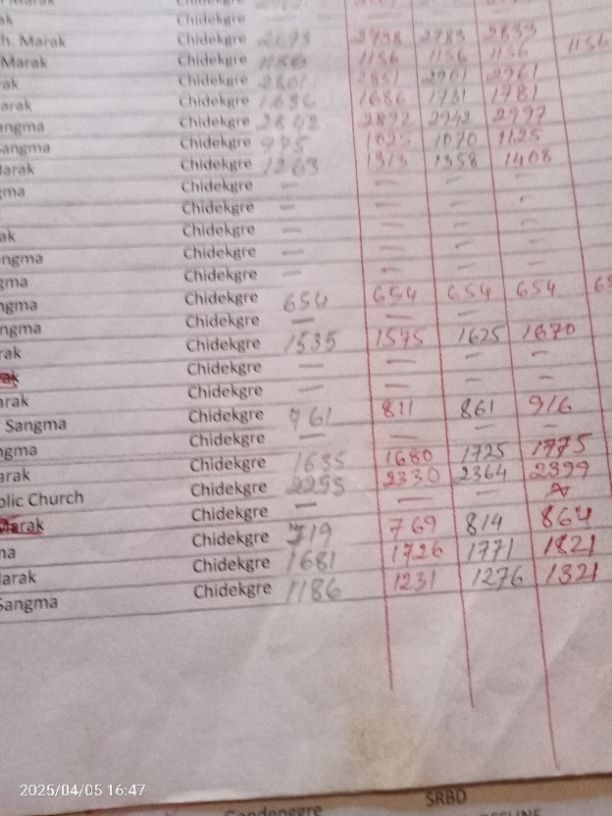 Chidekgre
ak Chidekgre
h. Marak Chidekgre 2738 2783 2833
Marak Chidekgre 1156 1156 1156 1156 1156
ak Chidekgre
arak Chidekgre 1686 1686 1731 1781
angma Chidekgre 2892 2942 2997
Sangma Chidekgre 1025 1070 1125
larak Chidekgre 1263 1313 1358 1408
gma Chidekgre — — — —
Chidekgre — — — —
ak Chidekgre — — — —
ngma Chidekgre — — — —
gma Chidekgre — — — —
ngma Chidekgre 654 654 654 654 65
ngma Chidekgre — — —
rak Chidekgre 1535 1575 1625 1670
ak Chidekgre — — — —
arak Chidekgre — — — —
Sangma Chidekgre 761 811 861 916
ngma Chidekgre — — — —
arak Chidekgre 1635 1680 1725 1775
olic Church Chidekgre 2330 2364 2399
Marak Chidekgre — — —
na Chidekgre 719 769 814 864
larak Chidekgre 1681 1726 1771 1821
Sangma Chidekgre 1186 1231 1276 1321
2025/04/05 16:47
SRBD